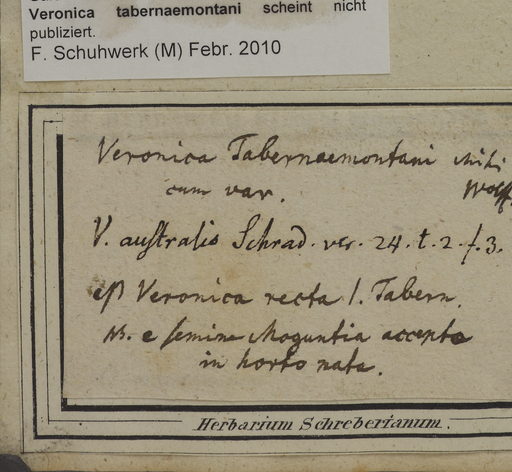 Veronica tabernaemontani scheint nicht
publiziert.
F. Schuhwerk (M) Febr. 2010
Veronica Tabernaemontani mihi
cum var. Wolff.
V. auſtralis Schrad. ver. 24. t. 2. f. 3.
eſt Veronica recta 1. Tabern.
NB. e ſemine Moguntia accepto
in horto nata.
Herbarium Schreberianum.